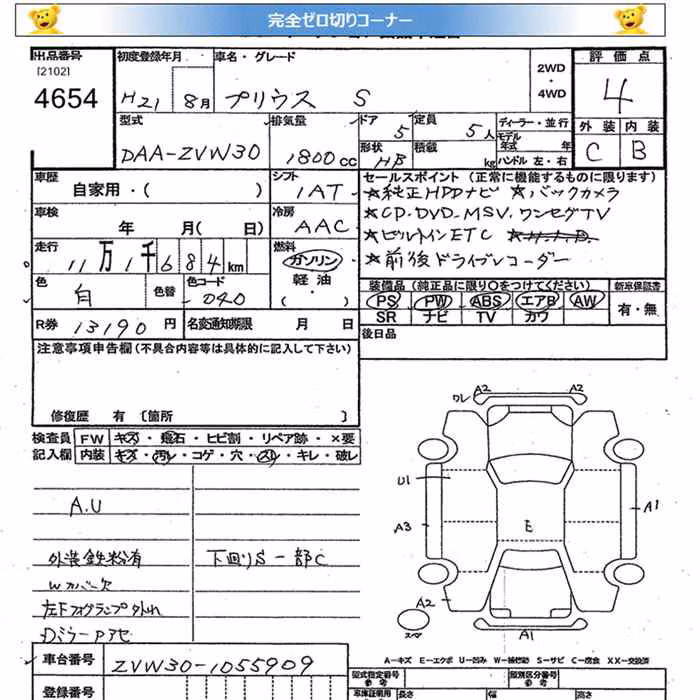 完全ゼロ切りコーナー
出品番号
[2102]
4654
初度登録年月
H21 8月
車名・グレード
プリウス S
2WD
・
4WD
評価点
4
外装 内装
C B
型式
DAA-ZVW30
排気量
1800cc
ドア
5
形状
HB
定員
5人
積載
kg
ディーラー・並行
モデル
年式 年
ハンドル 左・右
車歴
自家用・( )
シフト
1AT
車検
年 月( 日)
冷房
AAC
走行
11万1千684km
燃料
ガソリン
軽油
・( )
色
白
色替
色コード
040
R券 13190円
名変通知期限 月 日
セールスポイント(正常に機能するものに限ります)
★純正HDDナビ ★バックカメラ
★CD.DVD.MSV.ワンセグTV
★ビルトインETC ★H.I.D
★前後ドライブレコーダー
装備品(純正品に限り○をつけてください)
PS PW ABS エアB AW
SR ナビ TV カワ
新車保証書
有・無
後日品
注意事項申告欄(不具合内容等は具体的に記入して下さい)
修復歴 有〔箇所 〕
検査員
記入欄
FW キズ・飛石・ヒビ割・リペア跡・×要
内装 キズ・汚レ・コゲ・穴・スレ・キレ・破レ
A.U
外装鉄粉有
Wカバー欠
左Fフォグランプ外れ
Dミラーアセ
下回りS一部C
ワレ A2 A2
U1
A1
A3
E
A2
スマ
A1
A-キズ E-エクボ U-凹み W-補修跡 S-サビ C-腐食 XX-交換済
車台番号
ZVW30-1055909
登録番号
型式指定番号
参考
類別区分番号
参考
車庫証明用
長さ
幅
高さ